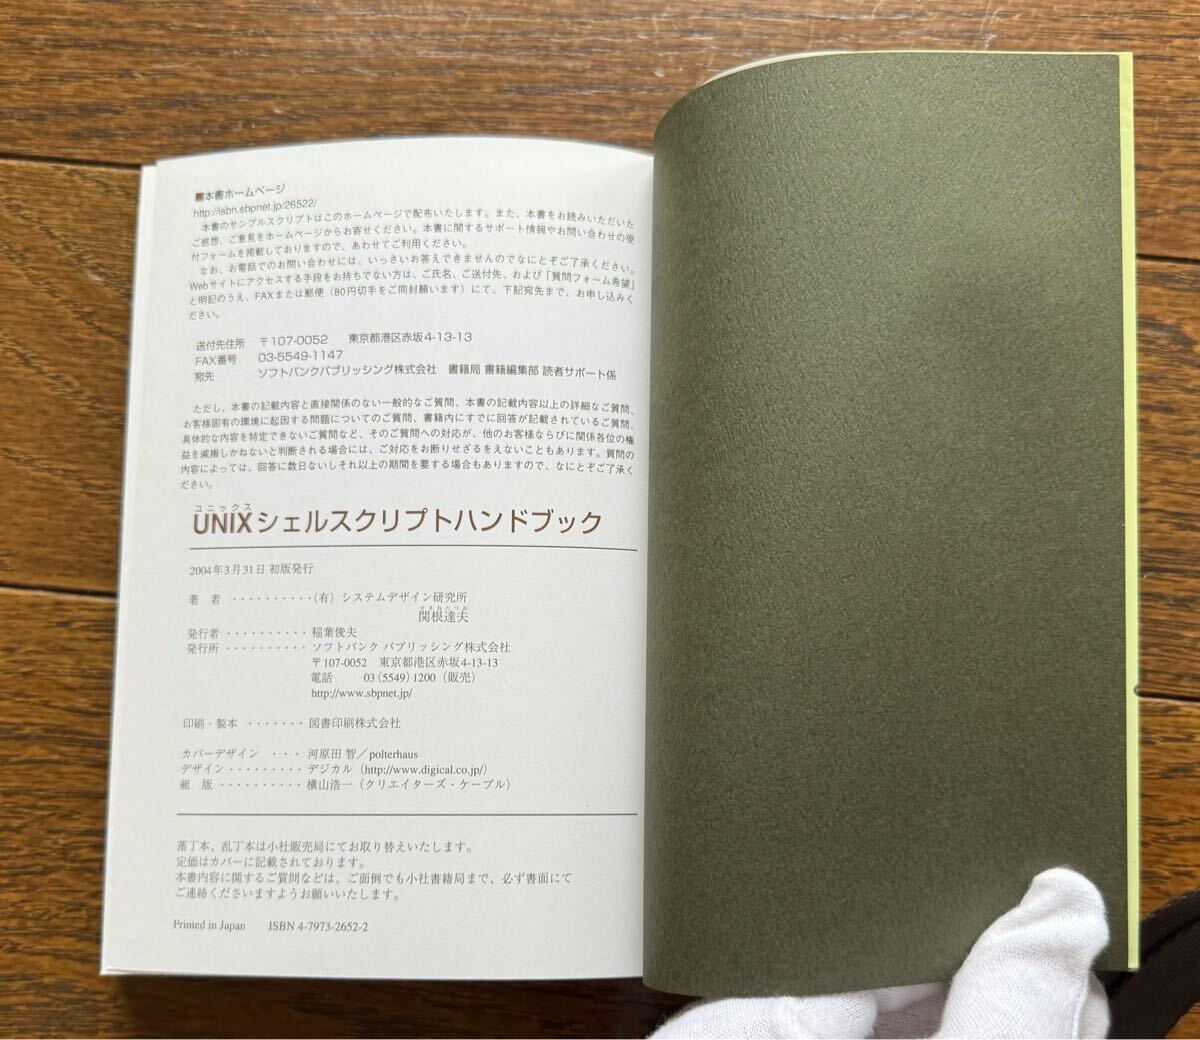 ■本書ホームページ
http://isbn.sbpnet.jp/26522/
本書のサンプルスクリプトはこのホームページで配布いたします。また、本書をお読みいただいた
ご感想、ご意見をホームページからお寄せください。本書に関するサポート情報やお問い合わせの受
付フォームを掲載しておりますので、あわせてご利用ください。
なお、お電話でのお問い合わせには、いっさいお答えできませんのでなにとぞご了承ください。
Webサイトにアクセスする手段をお持ちでない方は、ご氏名、ご送付先、および「質問フォーム希望」
と明記のうえ、FAXまたは郵便（80円切手をご同封願います）にて、下記宛先まで、お申し込みく
ださい。
送付先住所 〒107-0052 東京都港区赤坂4-13-13
FAX番号 03-5549-1147
宛先 ソフトバンクパブリッシング株式会社 書籍局 書籍編集部 読者サポート係
ただし、本書の記載内容と直接関係のない一般的なご質問、本書の記載内容以上の詳細なご質問、
お客様固有の環境に起因する問題についてのご質問、書籍内にすでに回答が記載されているご質問、
具体的な内容を特定できないご質問など、そのご質問への対応が、他のお客様ならびに関係各位の権
益を減損しかねないと判断される場合には、ご対応をお断りせざるをえないこともあります。質問の
内容によっては、回答に数日ないしそれ以上の期間を要する場合もありますので、なにとぞご了承く
ださい。
ユニックス
UNIXシェルスクリプトハンドブック
2004年3月31日 初版発行
著 者 ··········（有）システムデザイン研究所
せきねたつお
関根達夫
発行者 ·········· 稲葉俊夫
発行所 ·········· ソフトバンク パブリッシング株式会社
〒107-0052 東京都港区赤坂4-13-13
電話 03 (5549) 1200（販売）
http://www.sbpnet.jp/
印刷・製本 ······· 図書印刷株式会社
カバーデザイン ··· 河原田 智／polterhaus
デザイン ········· デジカル（http://www.digical.co.jp/）
組 版 ·········· 横山浩一（クリエイターズ・ケーブル）
落丁本、乱丁本は小社販売局にてお取り替えいたします。
定価はカバーに記載されております。
本書内容に関するご質問などは、ご面倒でも小社書籍局まで、必ず書面にて
ご連絡くださいますようお願いいたします。
Printed in Japan ISBN 4-7973-2652-2